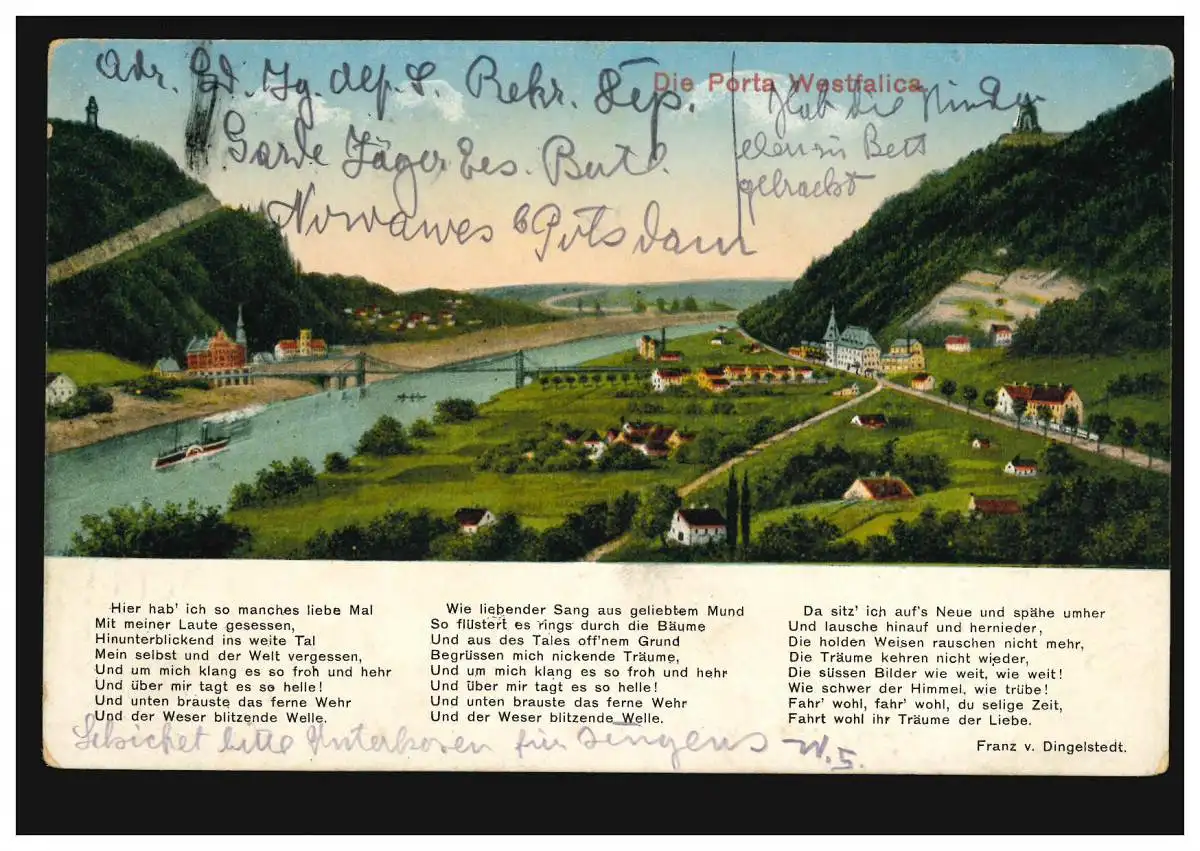 Adr. Gd. Jg. Rekr. Dep.
Garde Jäger Bat.
Nowawes b Potsdam
Die Porta Westfalica
Hab die
in Bett
gebracht
Hier hab' ich so manches liebe Mal
Mit meiner Laute gesessen,
Hinunterblickend ins weite Tal
Mein selbst und der Welt vergessen,
Und um mich klang es so froh und hehr
Und über mir tagt es so helle!
Und unten brauste das ferne Wehr
Und der Weser blitzende Welle.
Wie liebender Sang aus geliebtem Mund
So flüstert es rings durch die Bäume
Und aus des Tales off'nem Grund
Begrüssen mich nickende Träume,
Und um mich klang es so froh und hehr
Und über mir tagt es so helle!
Und unten brauste das ferne Wehr
Und der Weser blitzende Welle.
Da sitz' ich auf's Neue und spähe umher
Und lausche hinauf und hernieder,
Die holden Weisen rauschen nicht mehr,
Die Träume kehren nicht wieder,
Die süssen Bilder wie weit, wie weit!
Wie schwer der Himmel, wie trübe!
Fahr' wohl, fahr' wohl, du selige Zeit,
Fahrt wohl ihr Träume der Liebe.
Franz v. Dingelstedt.
Schicket bitte Unterhosen für